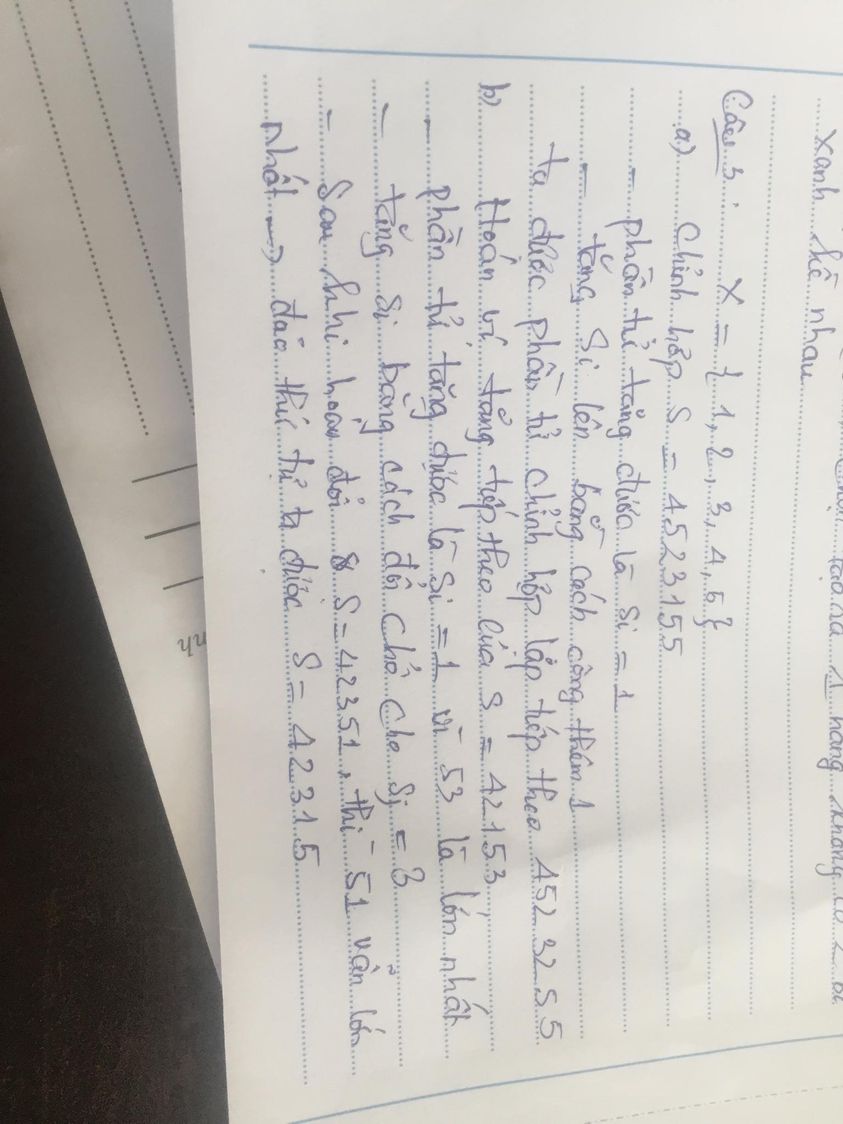 xanh kề nhau
Câu 3: X = {1, 2, 3, 4, 5}
a) Chỉnh hợp S = 4523155
- phần tử tăng được là Si = 1
- tăng Si lên bằng cách cộng thêm 1
ta được phần tử chỉnh hợp lặp tiếp theo 4523255
b) Hoán vị tăng tiếp theo của S = 42153
- phần tử tăng được là Si = 1 vì 53 là lớn nhất
- tăng Si bằng cách đổi chỗ cho Sj = 3
- Sau khi hoán đổi S = 42351, thì 51 vẫn lớn
nhất → đảo thứ tự ta được S = 42315
nh